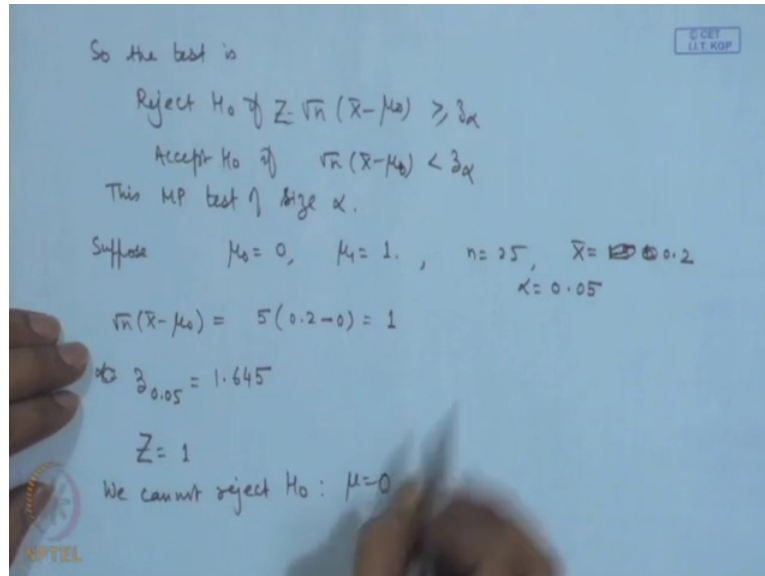 © CET
I.I.T. KGP
So the test is
Reject H₀ if Z = √n (x̄ - μ₀) ≥ z_α
Accept H₀ if √n (x̄ - μ₀) < z_α
This MP test of size α.
Suppose μ₀ = 0, μ₁ = 1. , n = 25, x̄ = 0.2
α = 0.05
√n (x̄ - μ₀) = 5 (0.2 - 0) = 1
z_0.05 = 1.645
Z = 1
We cannot reject H₀ : μ = 0
NPTEL